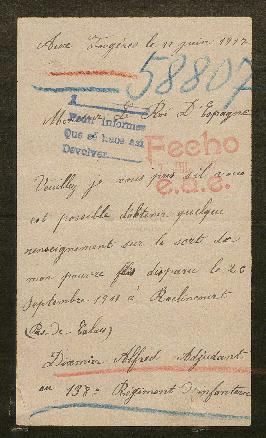 le 11 juin 1917
58807
Monsieur Le Roi D'Espagne
Pedir informes
Que se hace así
Devolver
Fecho
e.a.e.
Veuillez je vous prie s'il vous
est possible d'obtenir quelque
renseignement sur le sort de
mon pauvre fils disparu le 20
septembre 191 à Roclincourt
(Pas-de-Calais)
Alfred Adjudant
au 138e Régiment d'infanterie